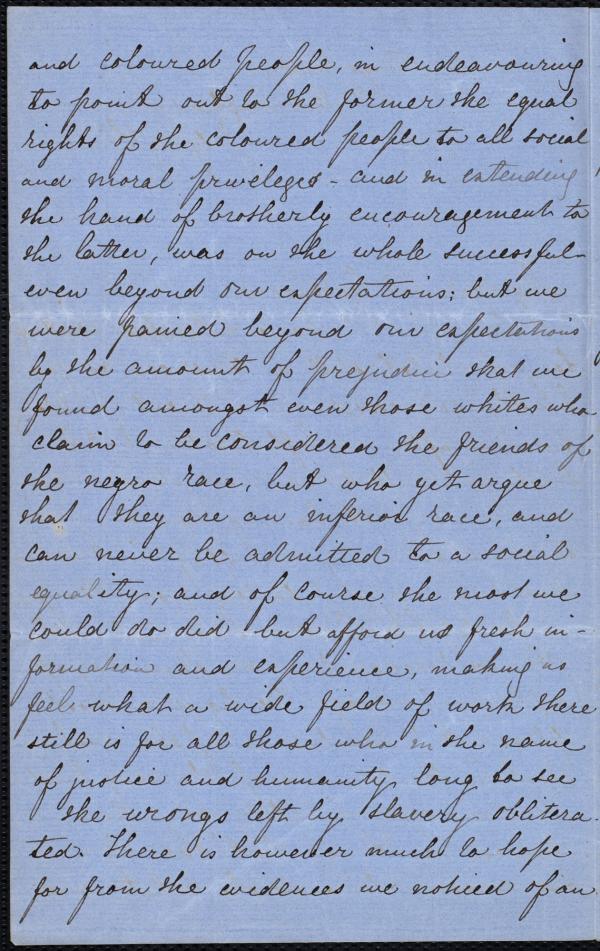 and coloured people, in endeavouring
to point out to the former the equal
rights of the coloured people to all social
and moral privileges - and in extending
the hand of brotherly encouragement to
the latter, was on the whole successful
even beyond our expectations; but we
were pained beyond our expectations
by the amount of prejudice that we
found amongst even those whites who
claim to be considered the friends of
the negro race, but who yet argue
that they are an inferior race, and
can never be admitted to a social
equality; and of course the most we
could do did but afford us fresh in-
formation and experience, making us
feel what a wide field of work there
still is for all those who in the name
of justice and humanity long to see
the wrongs left by slavery oblitera-
ted. There is however much to hope
for from the evidences we noticed of an